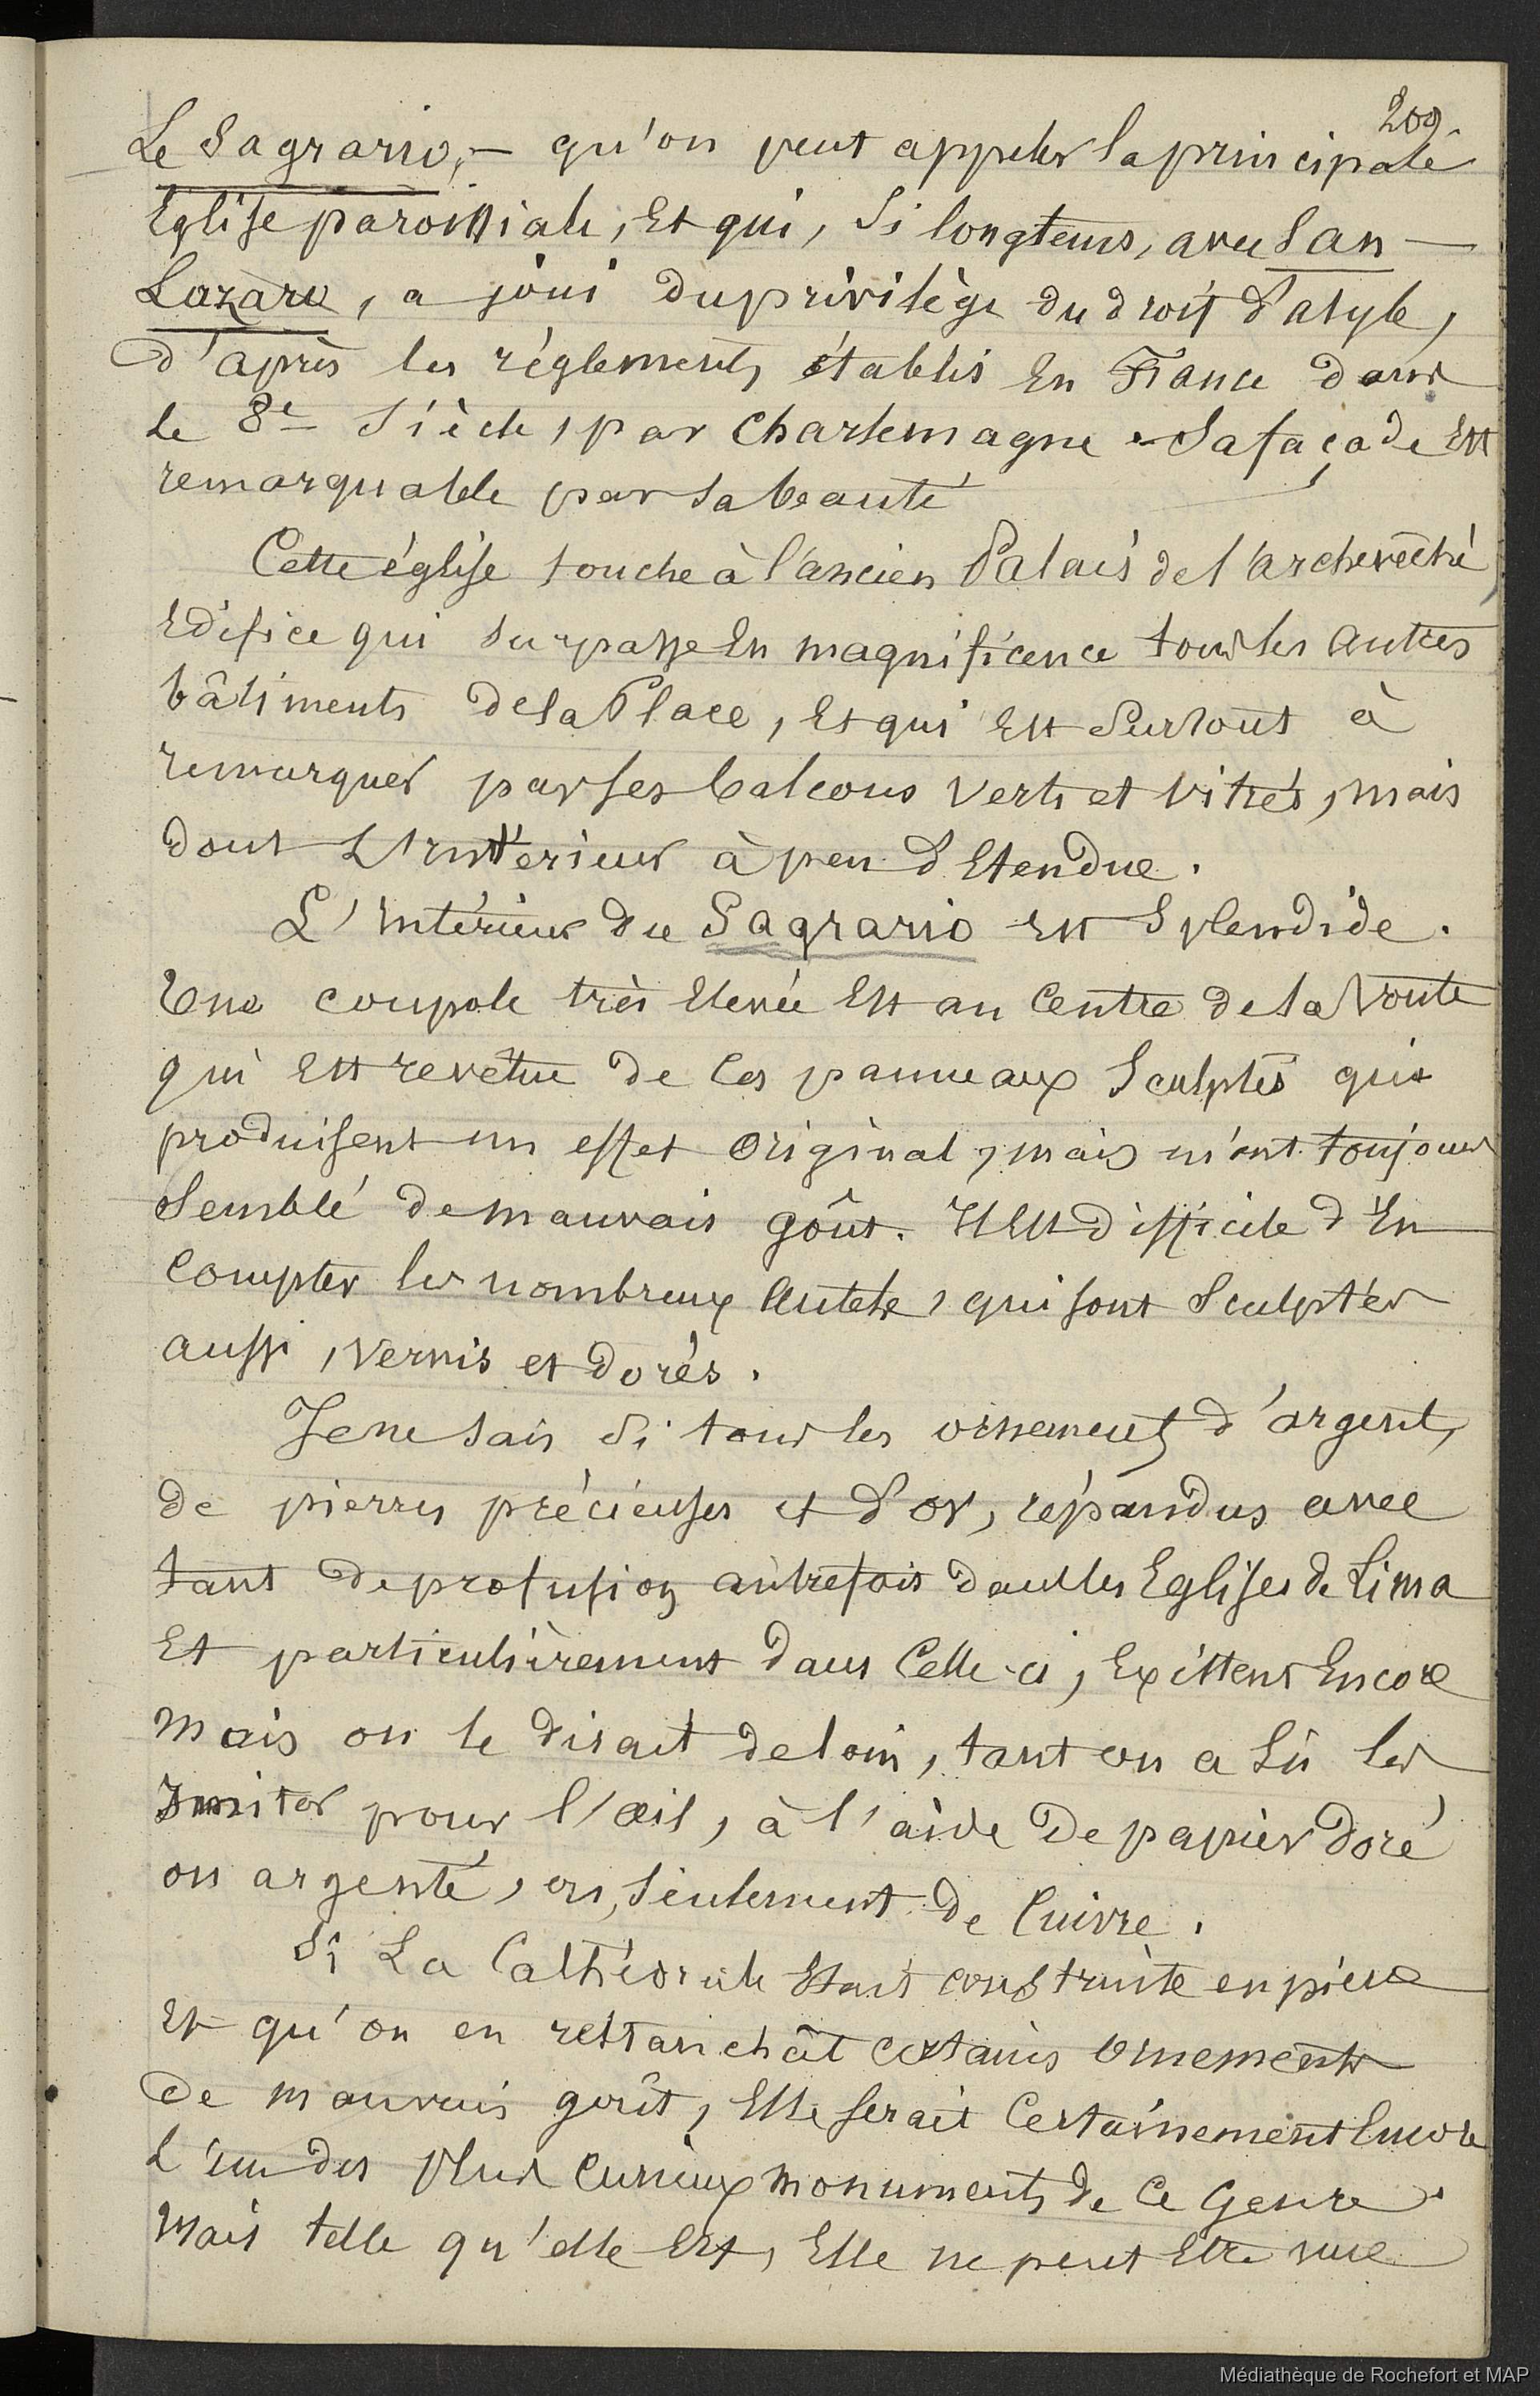 209.
Le Sagrario, — qu'on peut appeler la principale
Eglise paroissiale, Et qui, Si longtems, avec San —
Lazare, a joui du privilège du droit d'asyle,
d'après les règlements établis En France dans
le 8e Siècle, par Charlemagne. Sa façade Est
remarquable par sa beauté
Cette église touche à l'ancien Palais de l'archevêché,
Edifice qui surpasse En magnificence tous les autres
bâtiments de la Place, Et qui Est Surtout à
remarquer par ses balcons verts et vitrés, mais
dont L'intérieur à peu d'Etendue.
L'intérieur du Sagrario Est Splendide.
Une coupole très Elevée Est au Centre de la Voute
qui Est revêtue de Ces panneaux Sculptés qui
produisent un effet original, mais m'ont toujours
Semblé de mauvais goût. Il Est difficile d'En
Compter les nombreux Autels, qui sont Sculptés
aussi, vernis et dorés.
Je ne sais Si tous les ornements d'argent,
de pierres précieuses et d'or, répandus avec
tant de profusion autrefois dans les Eglises de Lima
Et particulièrement dans Celle-ci, Existent Encore
Mais on le dirait de loin, tant on a Sû les
Imiter pour l'œil, à l'aide de papier doré
ou argenté, ou, seulement de Cuivre.
Si La Cathédrale Etait construite en pierre
Et qu'on en retranchât certains ornements
de mauvais goût, Elle serait Certainement Encore
L'un des plus Curieux monuments de Ce Genre.
Mais telle qu'elle Est, Elle ne peut Etre vue
Médiathèque de Rochefort et MAP